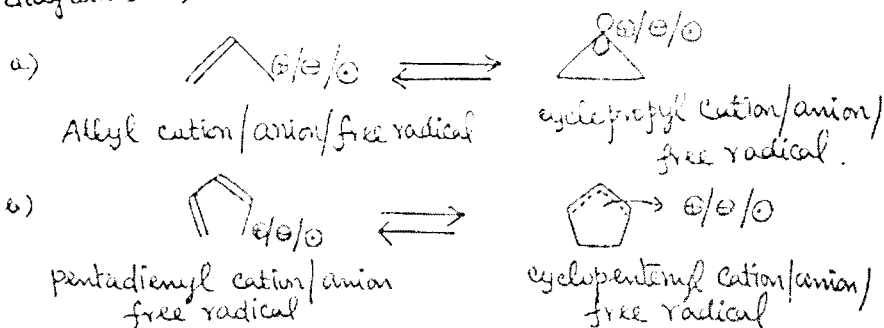 a) ⊕/⊖/⊙ ⊕/⊖/⊙
Allyl cation/anion/free radical cyclopropyl cation/anion/
free radical.
b) ⊕/⊖/⊙ ⊕/⊖/⊙
pentadienyl cation/anion cyclopentenyl cation/anion/
free radical free radical